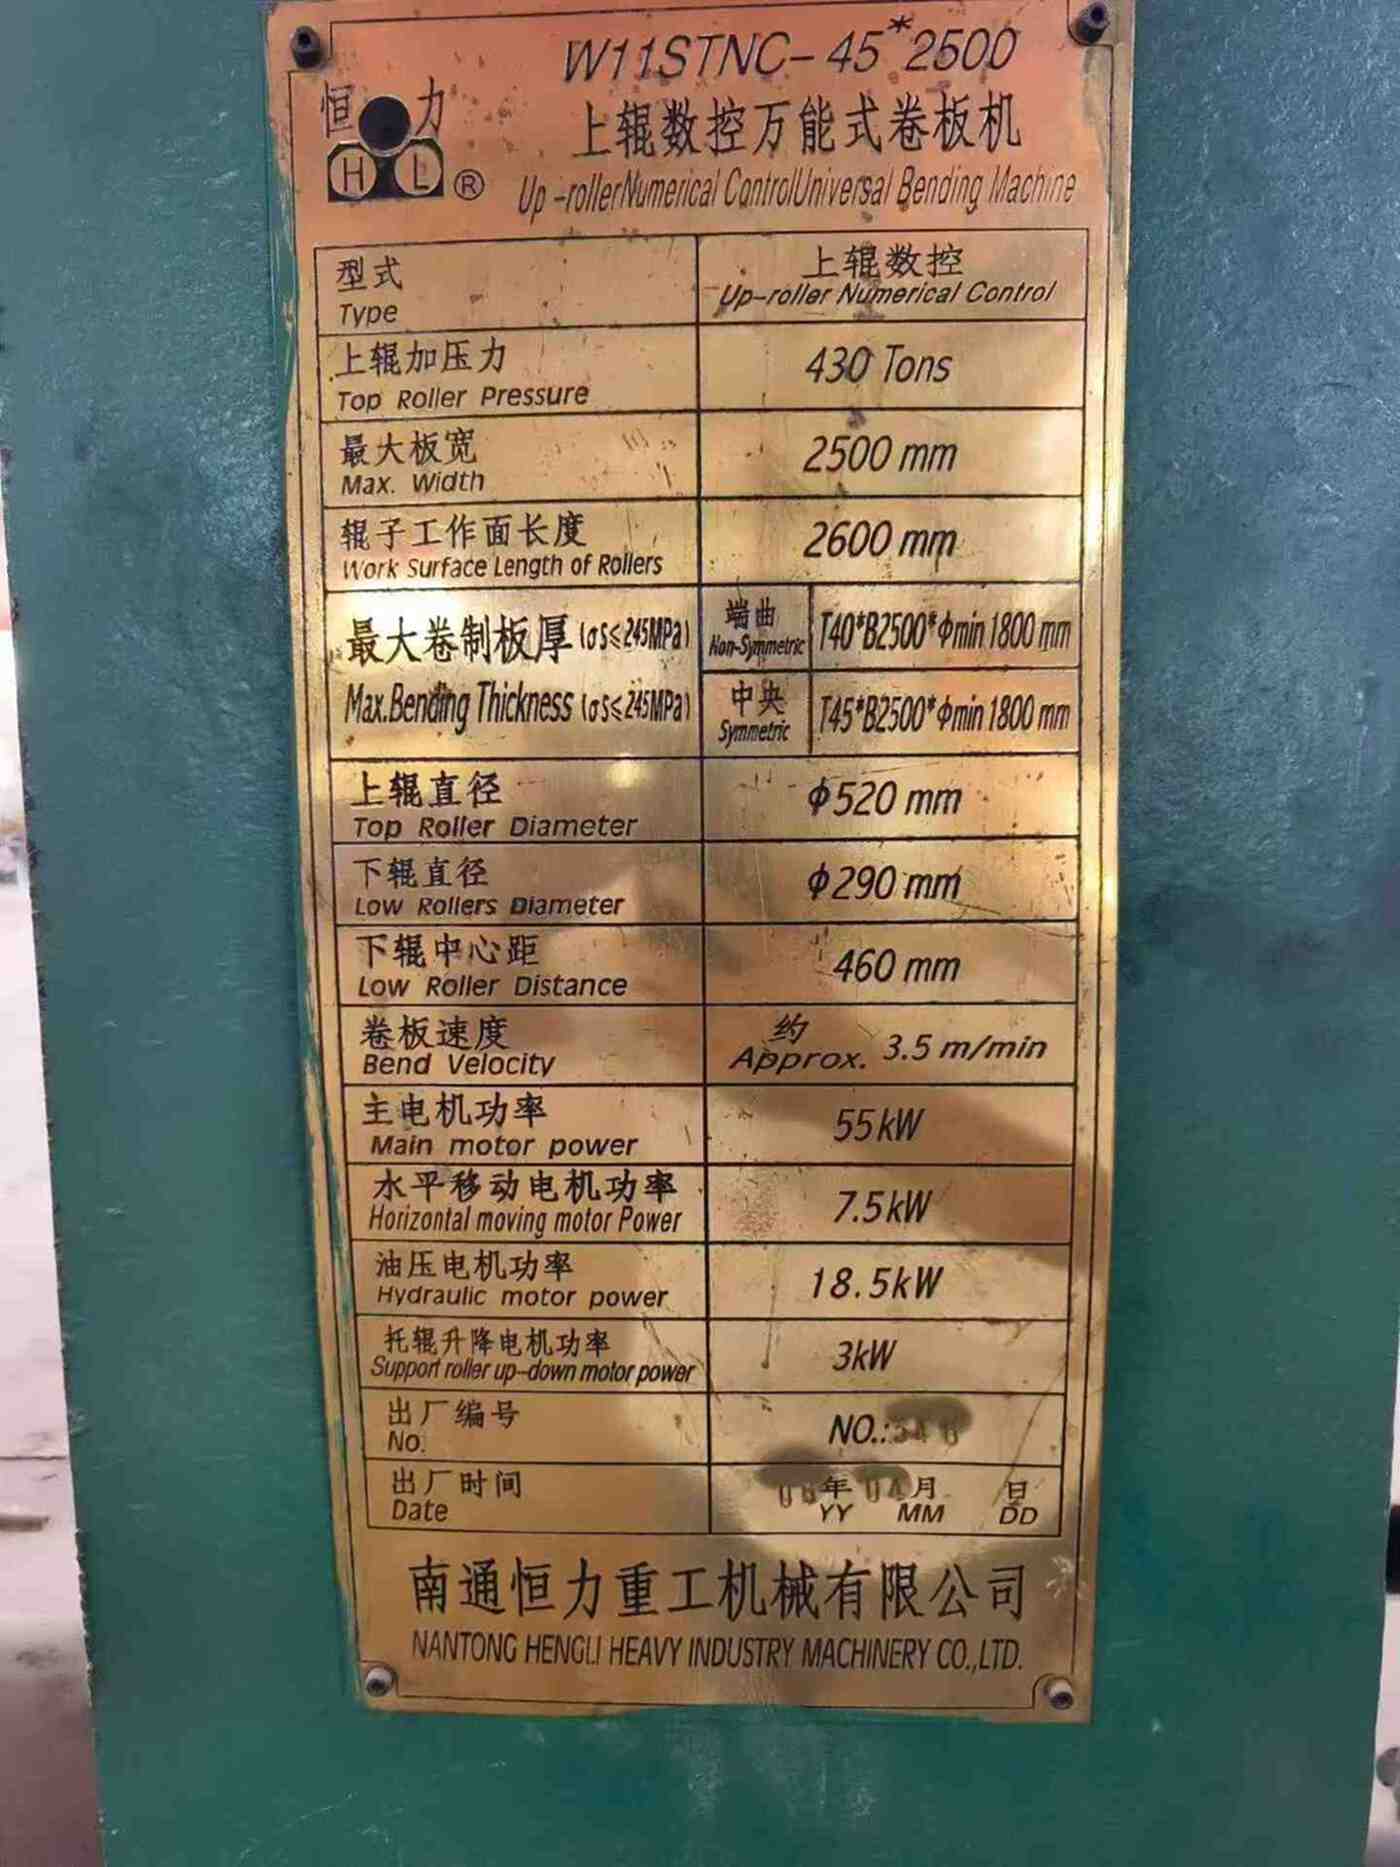 W11STNC-45*2500
恒力
上辊数控万能式卷板机
HL®
Up-rollerNumerical ControlUniversal Bending Machine
型式
Type
上辊数控
Up-roller Numerical Control
上辊加压力
Top Roller Pressure
430 Tons
最大板宽
Max. Width
2500 mm
辊子工作面长度
Work Surface Length of Rollers
2600 mm
最大卷制板厚(σs≤245MPa)
Max.Bending Thickness (σs≤245MPa)
端曲
Non-Symmetric
T40*B2500*Φmin1800mm
中央
Symmetric
T45*B2500*Φmin1800mm
上辊直径
Top Roller Diameter
Φ520 mm
下辊直径
Low Rollers Diameter
Φ290 mm
下辊中心距
Low Roller Distance
460 mm
卷板速度
Bend Velocity
约
Approx. 3.5 m/min
主电机功率
Main motor power
55kW
水平移动电机功率
Horizontal moving motor Power
7.5kW
油压电机功率
Hydraulic motor power
18.5kW
托辊升降电机功率
Support roller up-down motor power
3kW
出厂编号
No.
NO.:
出厂时间
Date
年 04月 日
YY MM DD
南通恒力重工机械有限公司
NANTONG HENGLI HEAVY INDUSTRY MACHINERY CO.,LTD.